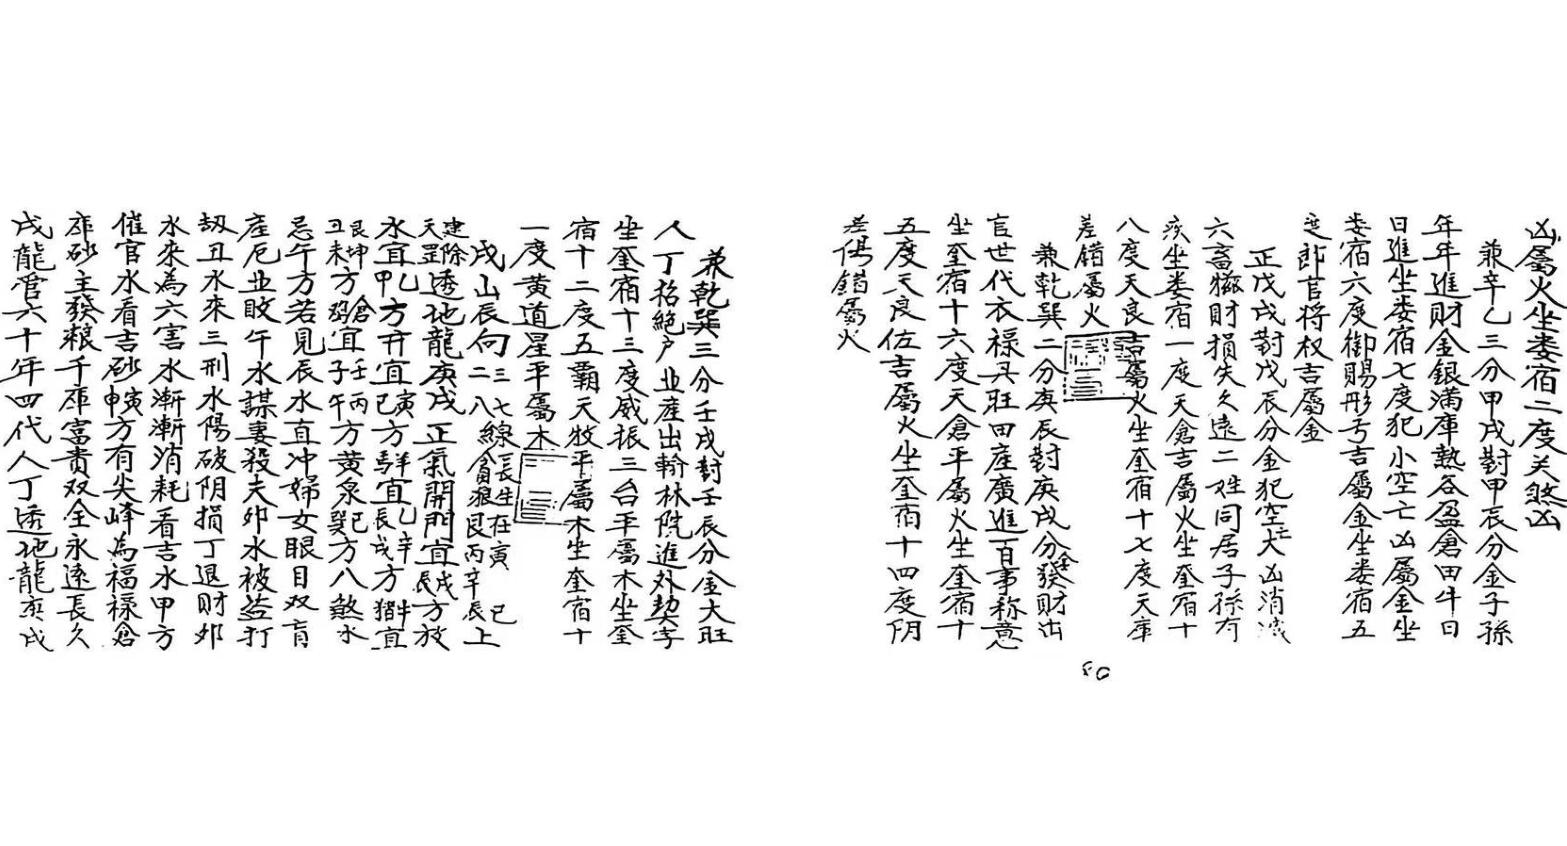 凶屬火坐娄宿二度关煞凶
兼辛乙三分甲戌對甲辰分金子孫
年年進財金銀滿庫熟各盈倉田牛日
日進坐娄宿七度犯小空亡凶屬金坐
娄宿六度御賜形弓吉屬金坐娄宿五
度即官将权吉屬金
正戊戌對戊辰分金犯空亡大凶消滅
六畜損財損失久遠二姓同居子孫有
疾坐娄宿一度天倉吉屬火坐奎宿十
八度天良吉屬火坐奎宿十七度天庫
差錯屬火
兼乾巽二分庚辰對庚戌分金發財出
官世代衣禄天旺田産廣進百事称意
坐奎宿十六度天倉平屬火坐奎宿十
五度天良佐吉屬火坐奎宿十四度阴
差伤錯屬火
80
兼乾巽三分壬戌對壬辰分金大旺
人丁招絕户业產出翰林院進外契字
坐奎宿十三度威振三台平屬木坐奎
宿十二度五霸天牧平屬木坐奎宿十
一度黄道星平屬木
戌山辰向三七二八線長生在寅貪狼艮丙辛辰巳上
建除天罡透地龍庚戌正氣開門宜戌辰方放
水宜乙甲方开宜巳寅方宜乙辛長戌方宜
艮坤丑未方倉宜壬丙子午方黄泉巽方八煞水
忌午方若見辰水直冲婦女眼目双盲
産厄业敗午水謀妻殺夫卯水被盗打
劫丑水來三刑水陽破阴損丁退财卯
水來為六害水漸漸消耗看吉水甲方
催官水看吉砂寅申方有尖峰為福禄倉
庫砂主發粮千庫富贵双全永遠長久
戌龍管六十年四代人丁透地龍庚戌